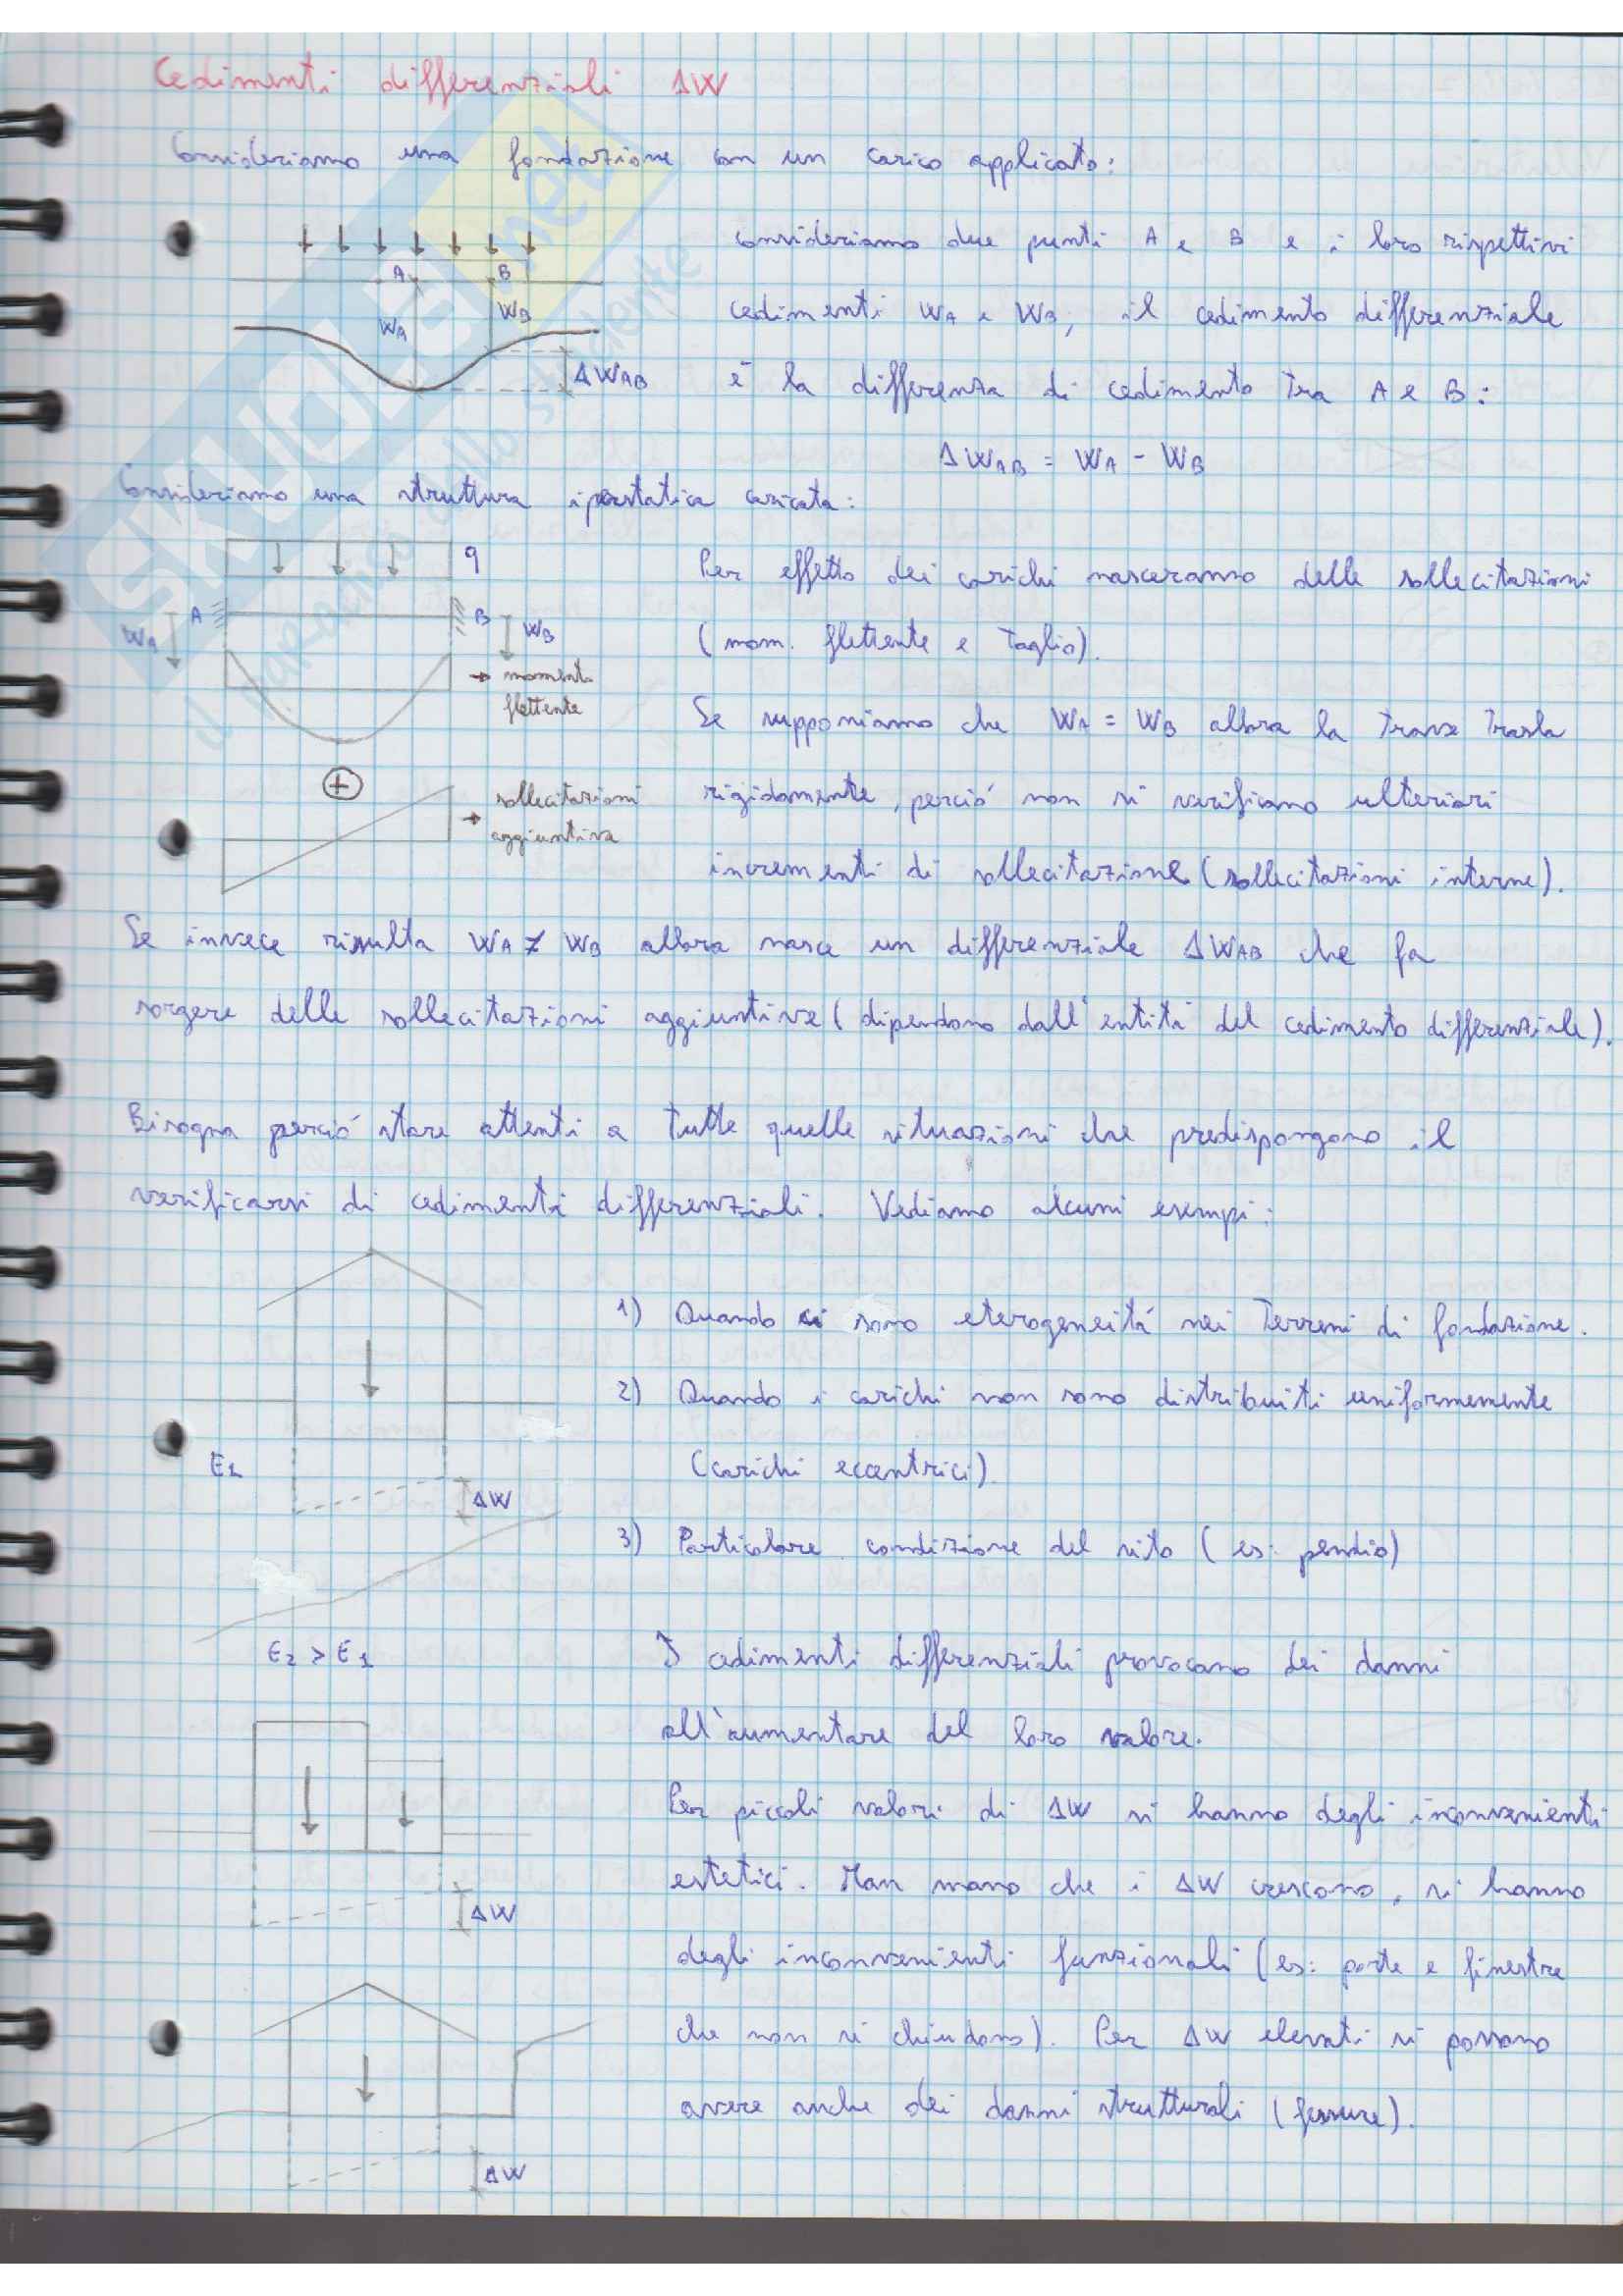 Cedimenti differenziali ΔW
Consideriamo una fondazione con un carico applicato:
consideriamo due punti A e B e i loro rispettivi
A B
WA WB
cedimenti WA e WB, il cedimento differenziale
ΔWAB
è la differenza di cedimento tra A e B:
ΔWAB = WA - WB
Consideriamo una struttura iperstatica caricata:
q
Per effetto dei carichi nasceranno delle sollecitazioni
A B
WA WB
(mom. flettente e taglio).
→ momento
flettente
Se supponiamo che WA = WB allora la trave trasla
+
→ sollecitazioni
aggiuntive
rigidamente, perciò non si verificano ulteriori
incrementi di sollecitazione (sollecitazioni interne).
Se invece risulta WA ≠ WB allora nasce un differenziale ΔWAB che fa
sorgere delle sollecitazioni aggiuntive (dipendono dall'entità del cedimento differenziale).
Bisogna perciò stare attenti a tutte quelle situazioni che predispongono il
verificarsi di cedimenti differenziali. Vediamo alcuni esempi:
1) Quando ci sono eterogeneità nei terreni di fondazione.
2) Quando i carichi non sono distribuiti uniformemente
(carichi eccentrici).
E1
ΔW
3) Particolare condizione del sito (es: pendio)
E2 > E1
I cedimenti differenziali provocano dei danni
all'aumentare del loro valore.
Per piccoli valori di ΔW si hanno degli inconvenienti
estetici. Man mano che i ΔW crescono, si hanno
ΔW
degli inconvenienti funzionali (es: porte e finestre
che non si chiudono). Per ΔW elevati si possono
avere anche dei danni strutturali (fessure).
ΔW
SKUOLA.net
il paradiso dello studente